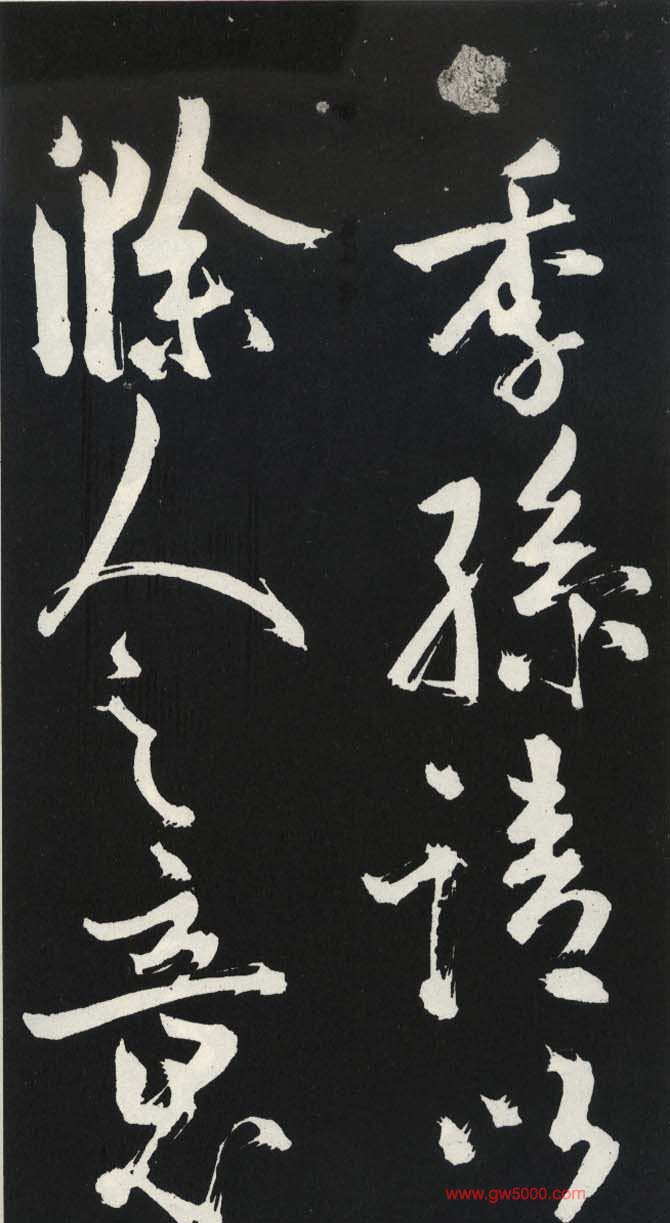 季孫請以
滁人之意
www.gw5000.com